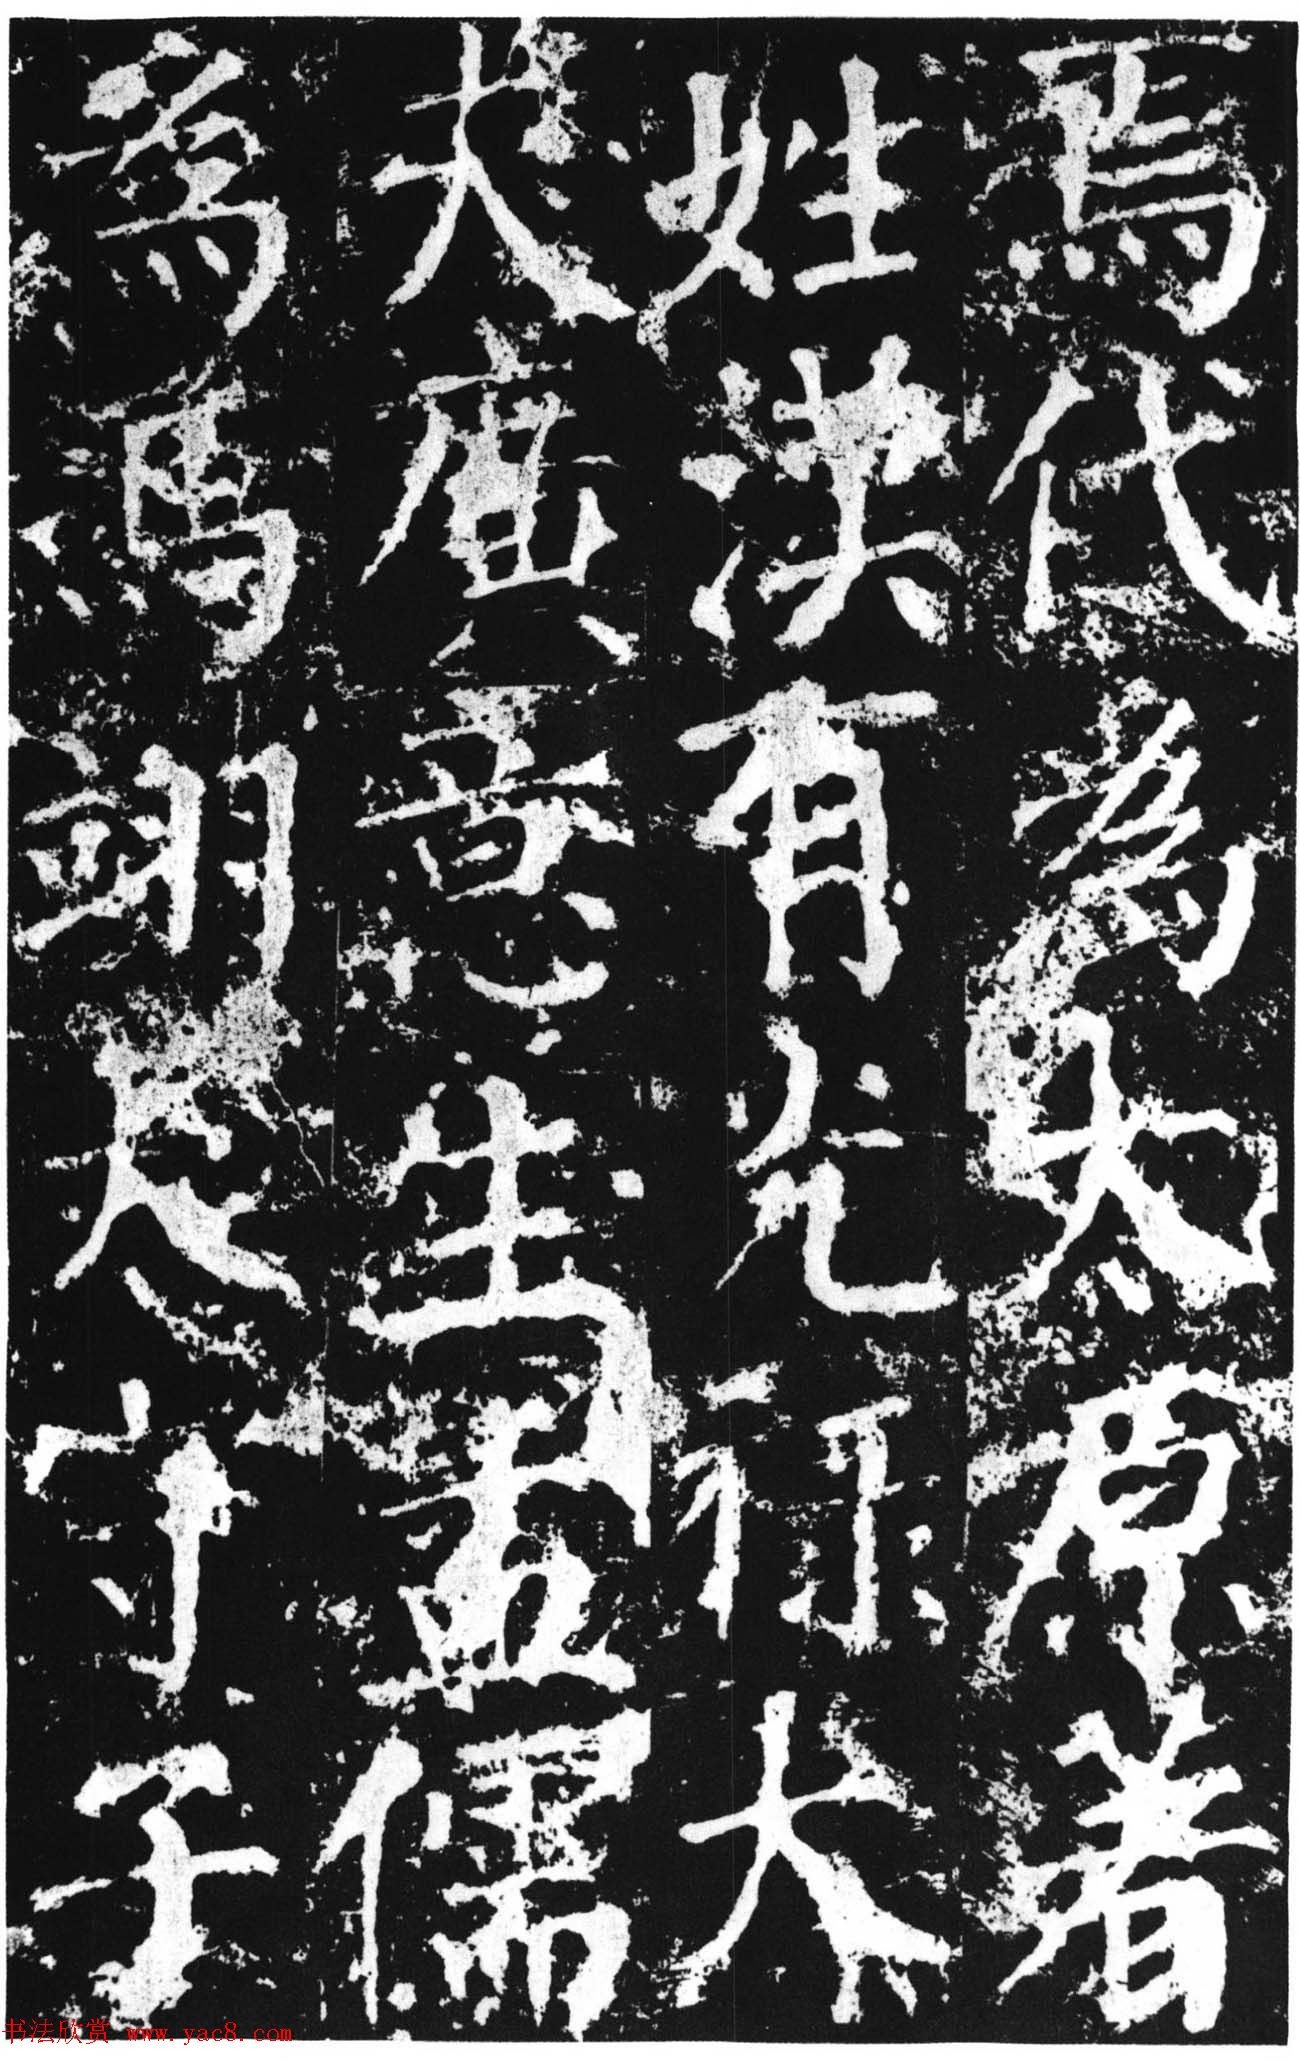 焉代為太原著
姓漢有光祿大
夫廣意生孟儒
為馮翊太守子
书法欣赏 www.yac8.com